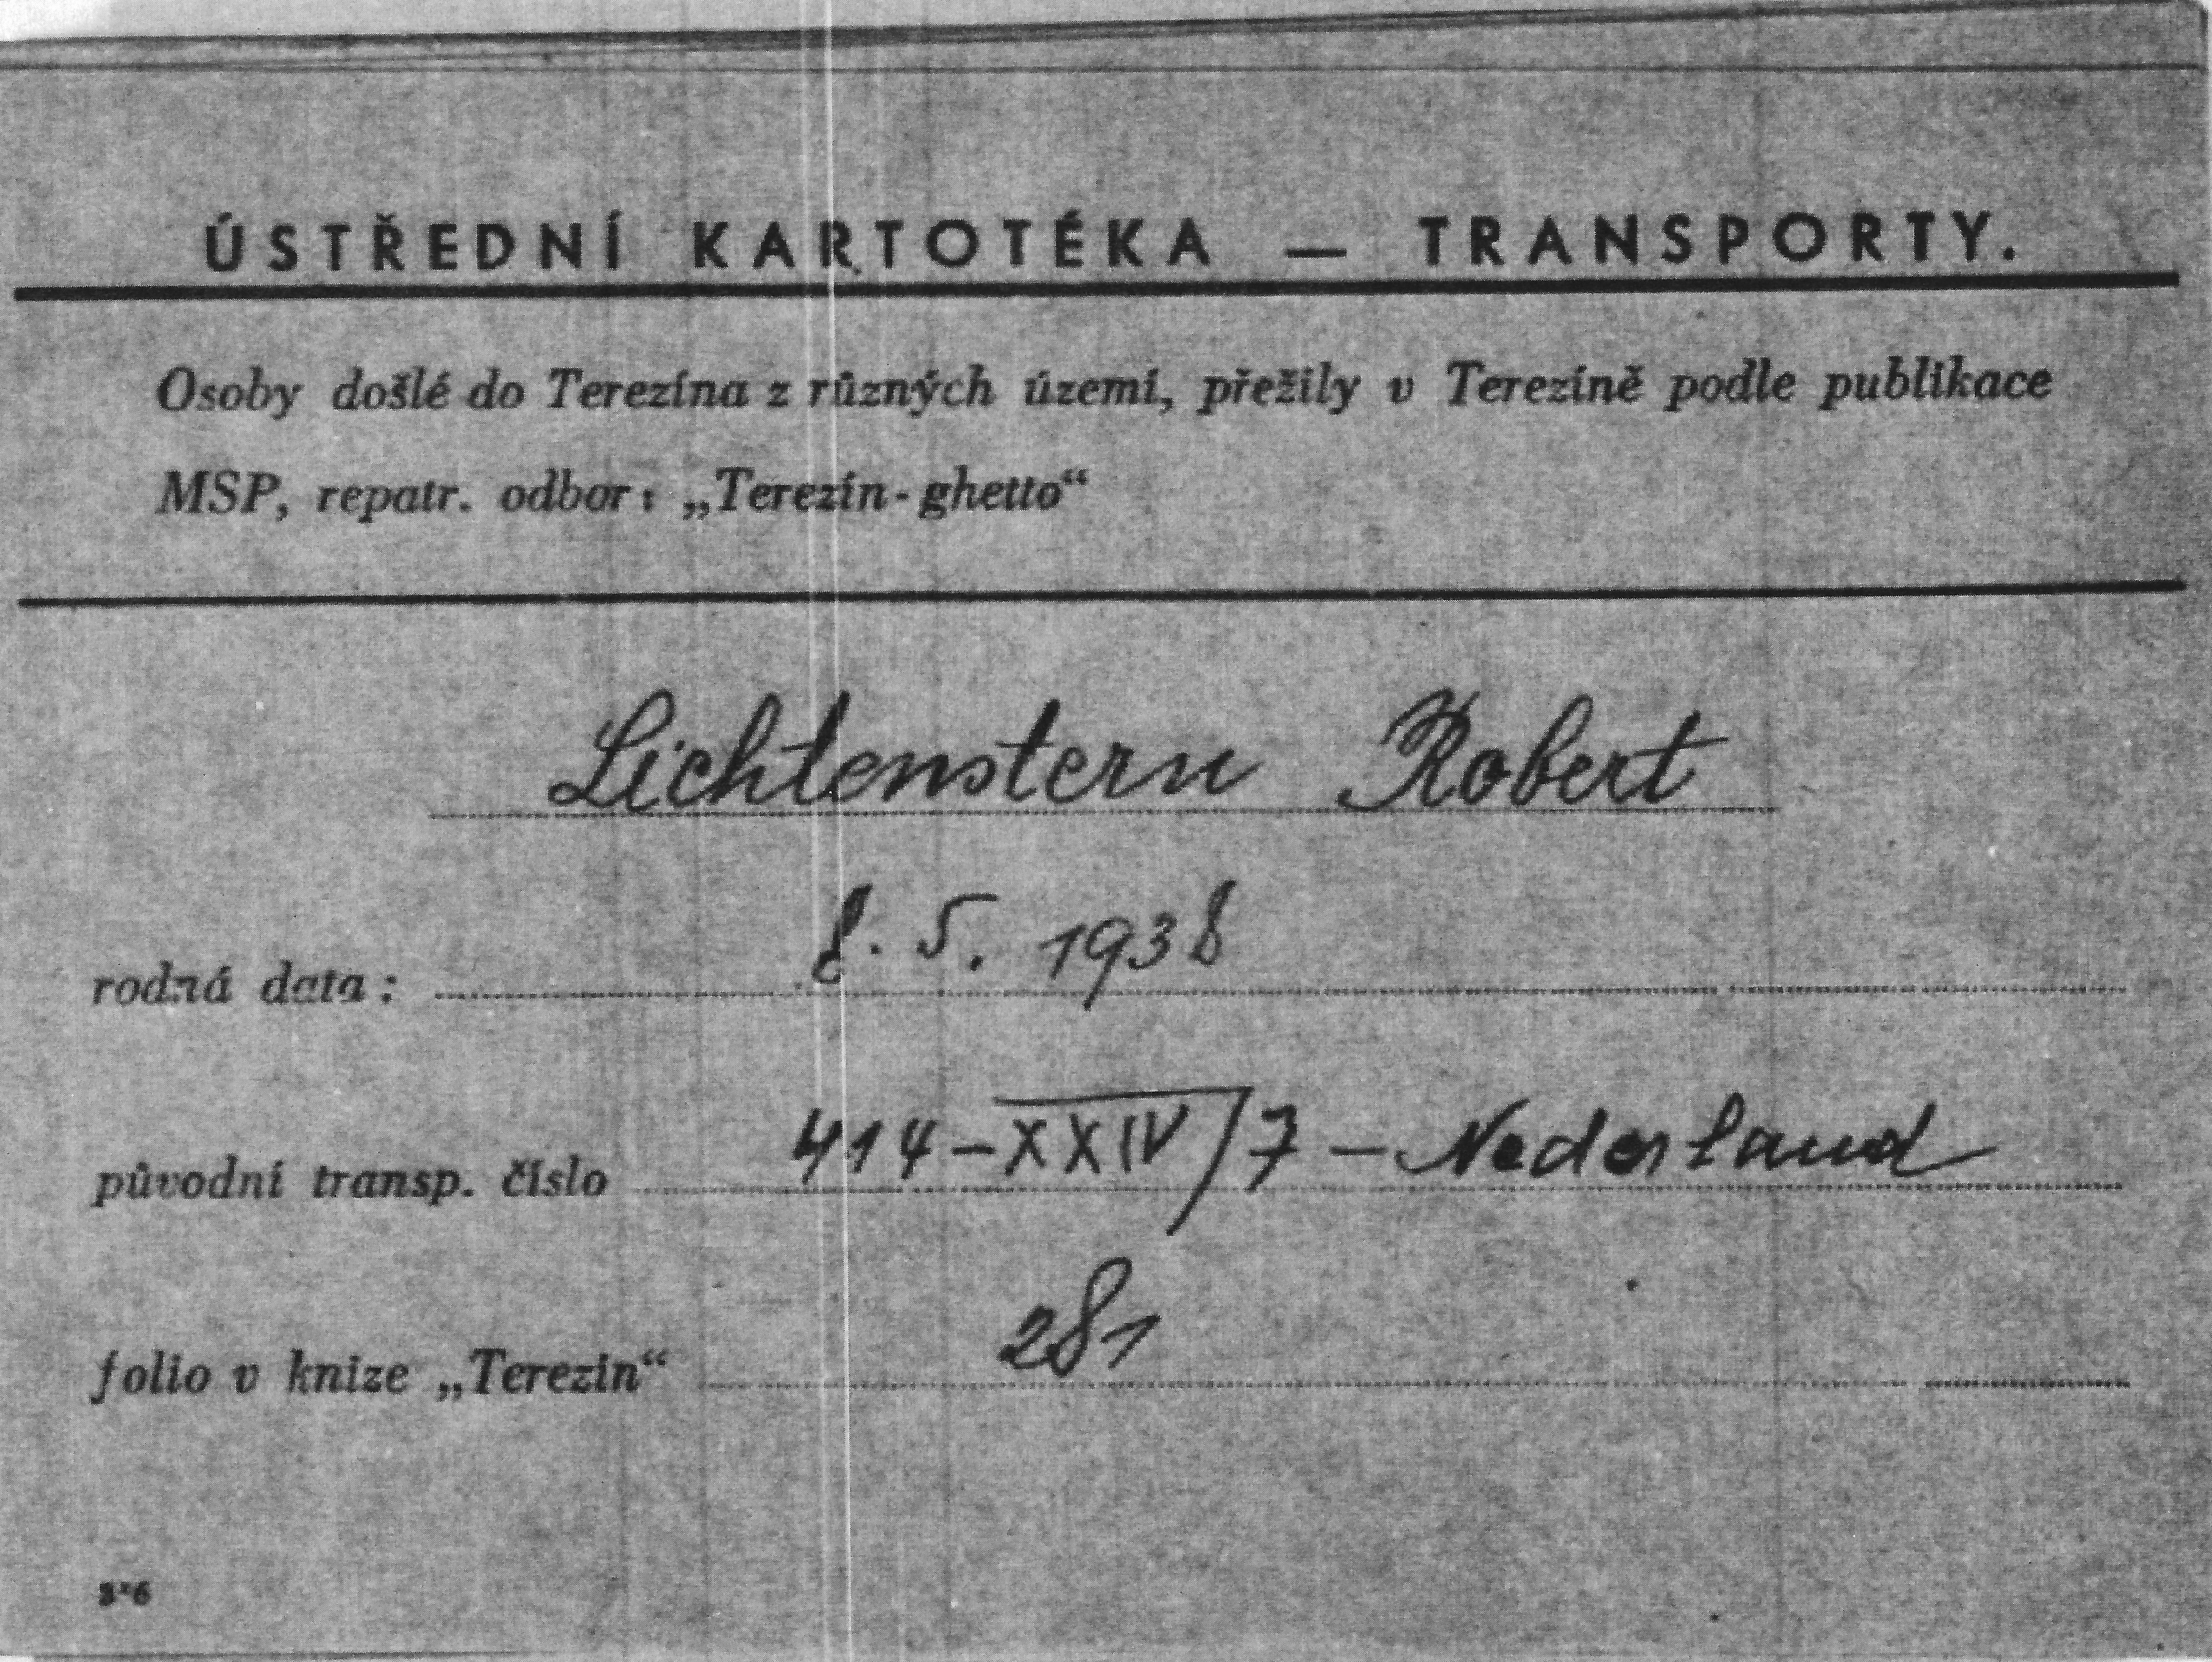 ÚSTŘEDNÍ KARTOTÉKA — TRANSPORTY.
Osoby došlé do Terezína z různých území, přežily v Terezíně podle publikace
MSP, repatr. odbor: „Terezín-ghetto“
Lichtenstern Robert
rodná data: 8. 5. 1938
původní transp. číslo 414-XXIV/7 - Nederland
folio v knize „Terezin“ 281